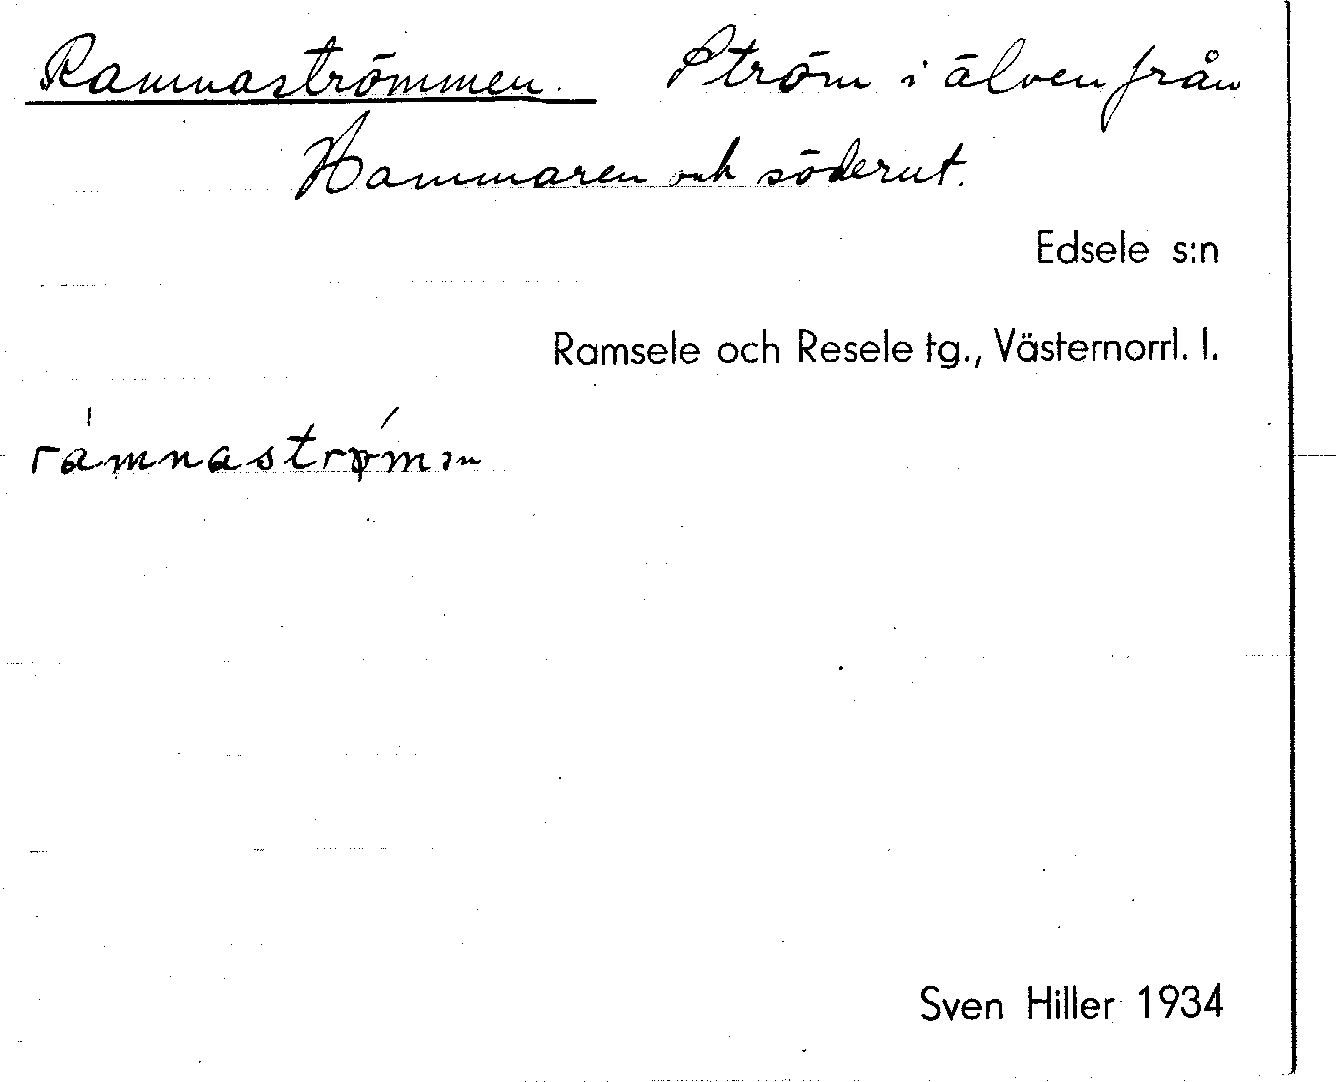 Ramnaströmmen. Ström i älven från
Hammaren och söderut.
Edsele s:n
Ramsele och Resele tg., Västernorrl. l.
Sven Hiller 1934